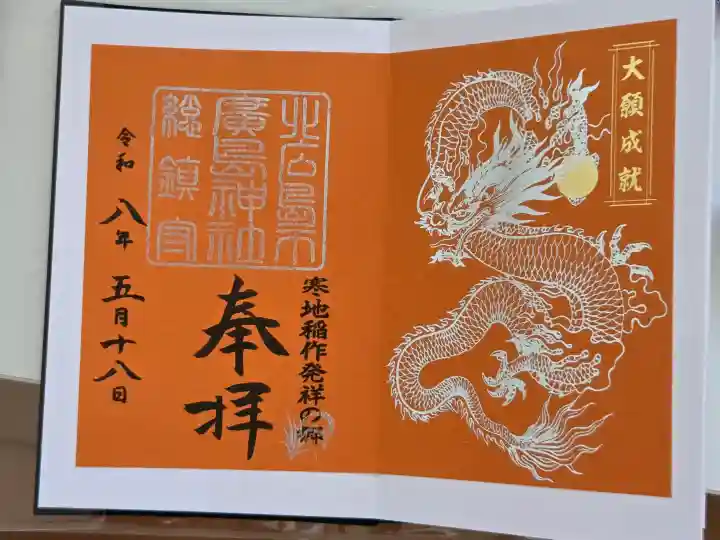 大願成就
北広島市
廣島神社
総鎮守
寒地稲作発祥の郷
奉拝
令和八年五月十八日